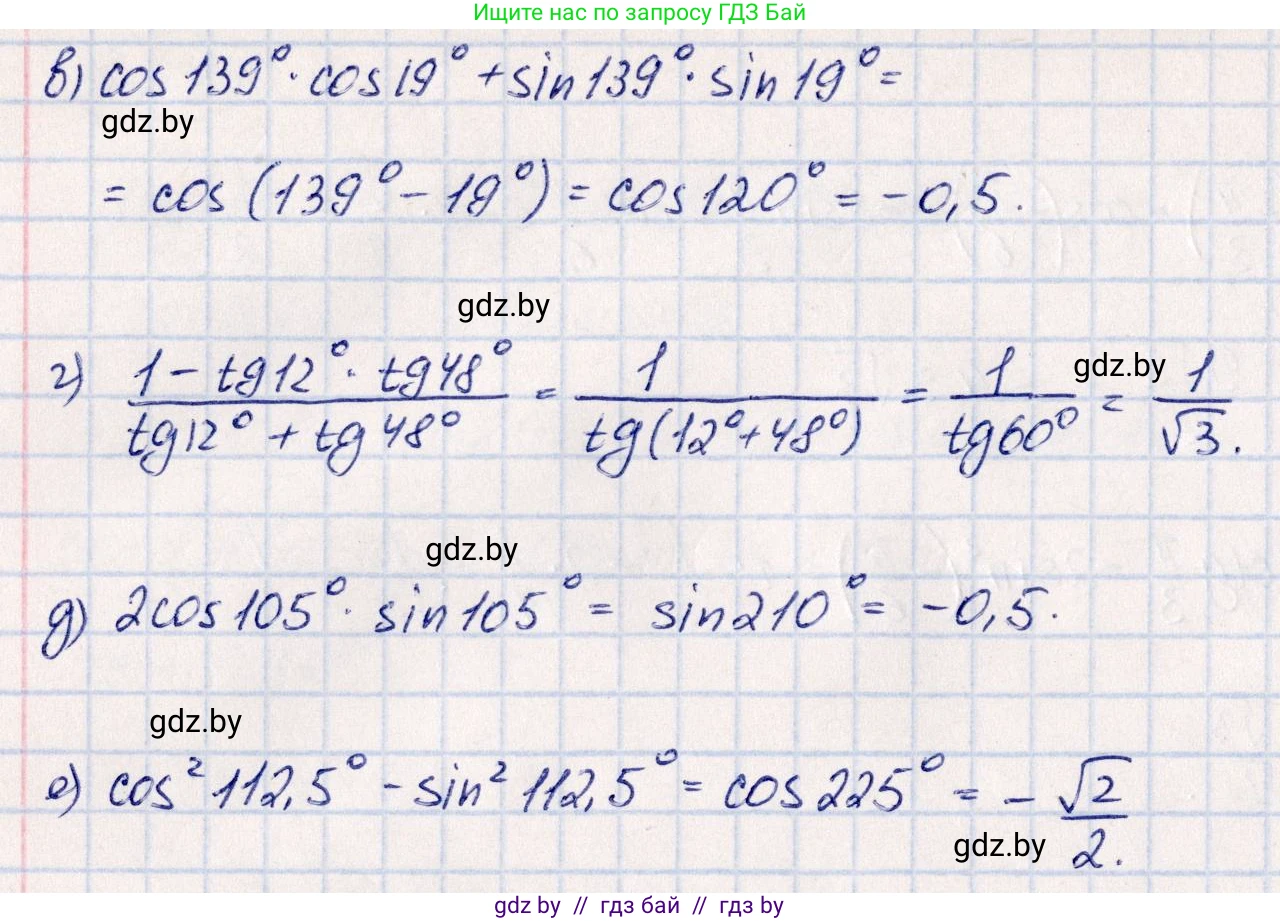 Ищите нас по запросу ГДЗ Бай
в) cos 139° · cos 19° + sin 139° · sin 19° =
gdz.by
= cos (139° - 19°) = cos 120° = -0,5.
gdz.by
г) (1 - tg 12° · tg 48°) / (tg 12° + tg 48°) = 1 / tg (12° + 48°) = 1 / tg 60° = 1 / √3.
gdz.by
gdz.by
д) 2 cos 105° · sin 105° = sin 210° = -0,5.
gdz.by
е) cos² 112,5° - sin² 112,5° = cos 225° = - √2 / 2.
gdz.by
gdz by // гдз бай // гдз by